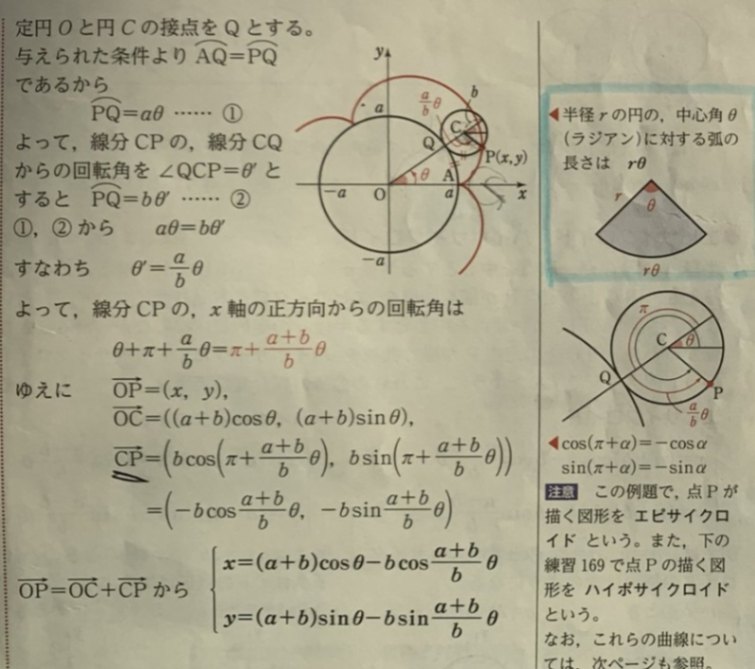 定円 O と円 C の接点を Q とする。
与えられた条件より $\overparen{AQ}=\overparen{PQ}$
であるから
$\overparen{PQ}=a\theta$ …… ①
よって，線分 CP の，線分 CQ
からの回転角を ∠QCP=θ′ と
すると $\overparen{PQ}=b\theta'$ …… ②
①，② から $a\theta=b\theta'$
すなわち $\theta'=\frac{a}{b}\theta$
よって，線分 CP の，x 軸の正方向からの回転角は
$\theta+\pi+\frac{a}{b}\theta=\pi+\frac{a+b}{b}\theta$
ゆえに $\overrightarrow{OP}=(x,\ y)$,
$\overrightarrow{OC}=((a+b)\cos\theta,\ (a+b)\sin\theta)$,
$\overrightarrow{CP}=\left(b\cos\left(\pi+\frac{a+b}{b}\theta\right),\ b\sin\left(\pi+\frac{a+b}{b}\theta\right)\right)$
$=\left(-b\cos\frac{a+b}{b}\theta,\ -b\sin\frac{a+b}{b}\theta\right)$
$\overrightarrow{OP}=\overrightarrow{OC}+\overrightarrow{CP}$ から
$x=(a+b)\cos\theta-b\cos\frac{a+b}{b}\theta$
$y=(a+b)\sin\theta-b\sin\frac{a+b}{b}\theta$
y
a
$\frac{a}{b}\theta$
b
C
Q
P(x, y)
θ
A
−a
O
a
x
−a
◀半径 r の円の，中心角 θ
(ラジアン)に対する弧の
長さは rθ
r
θ
rθ
π
C
θ
Q
P
$\frac{a}{b}\theta$
◀cos(π+α)=−cosα
sin(π+α)=−sinα
注意 この例題で，点 P が
描く図形を エピサイクロ
イド という。また，下の
練習 169 で点 P の描く図
形を ハイポサイクロイド
という。
なお，これらの曲線につい
ては，次ページも参照。